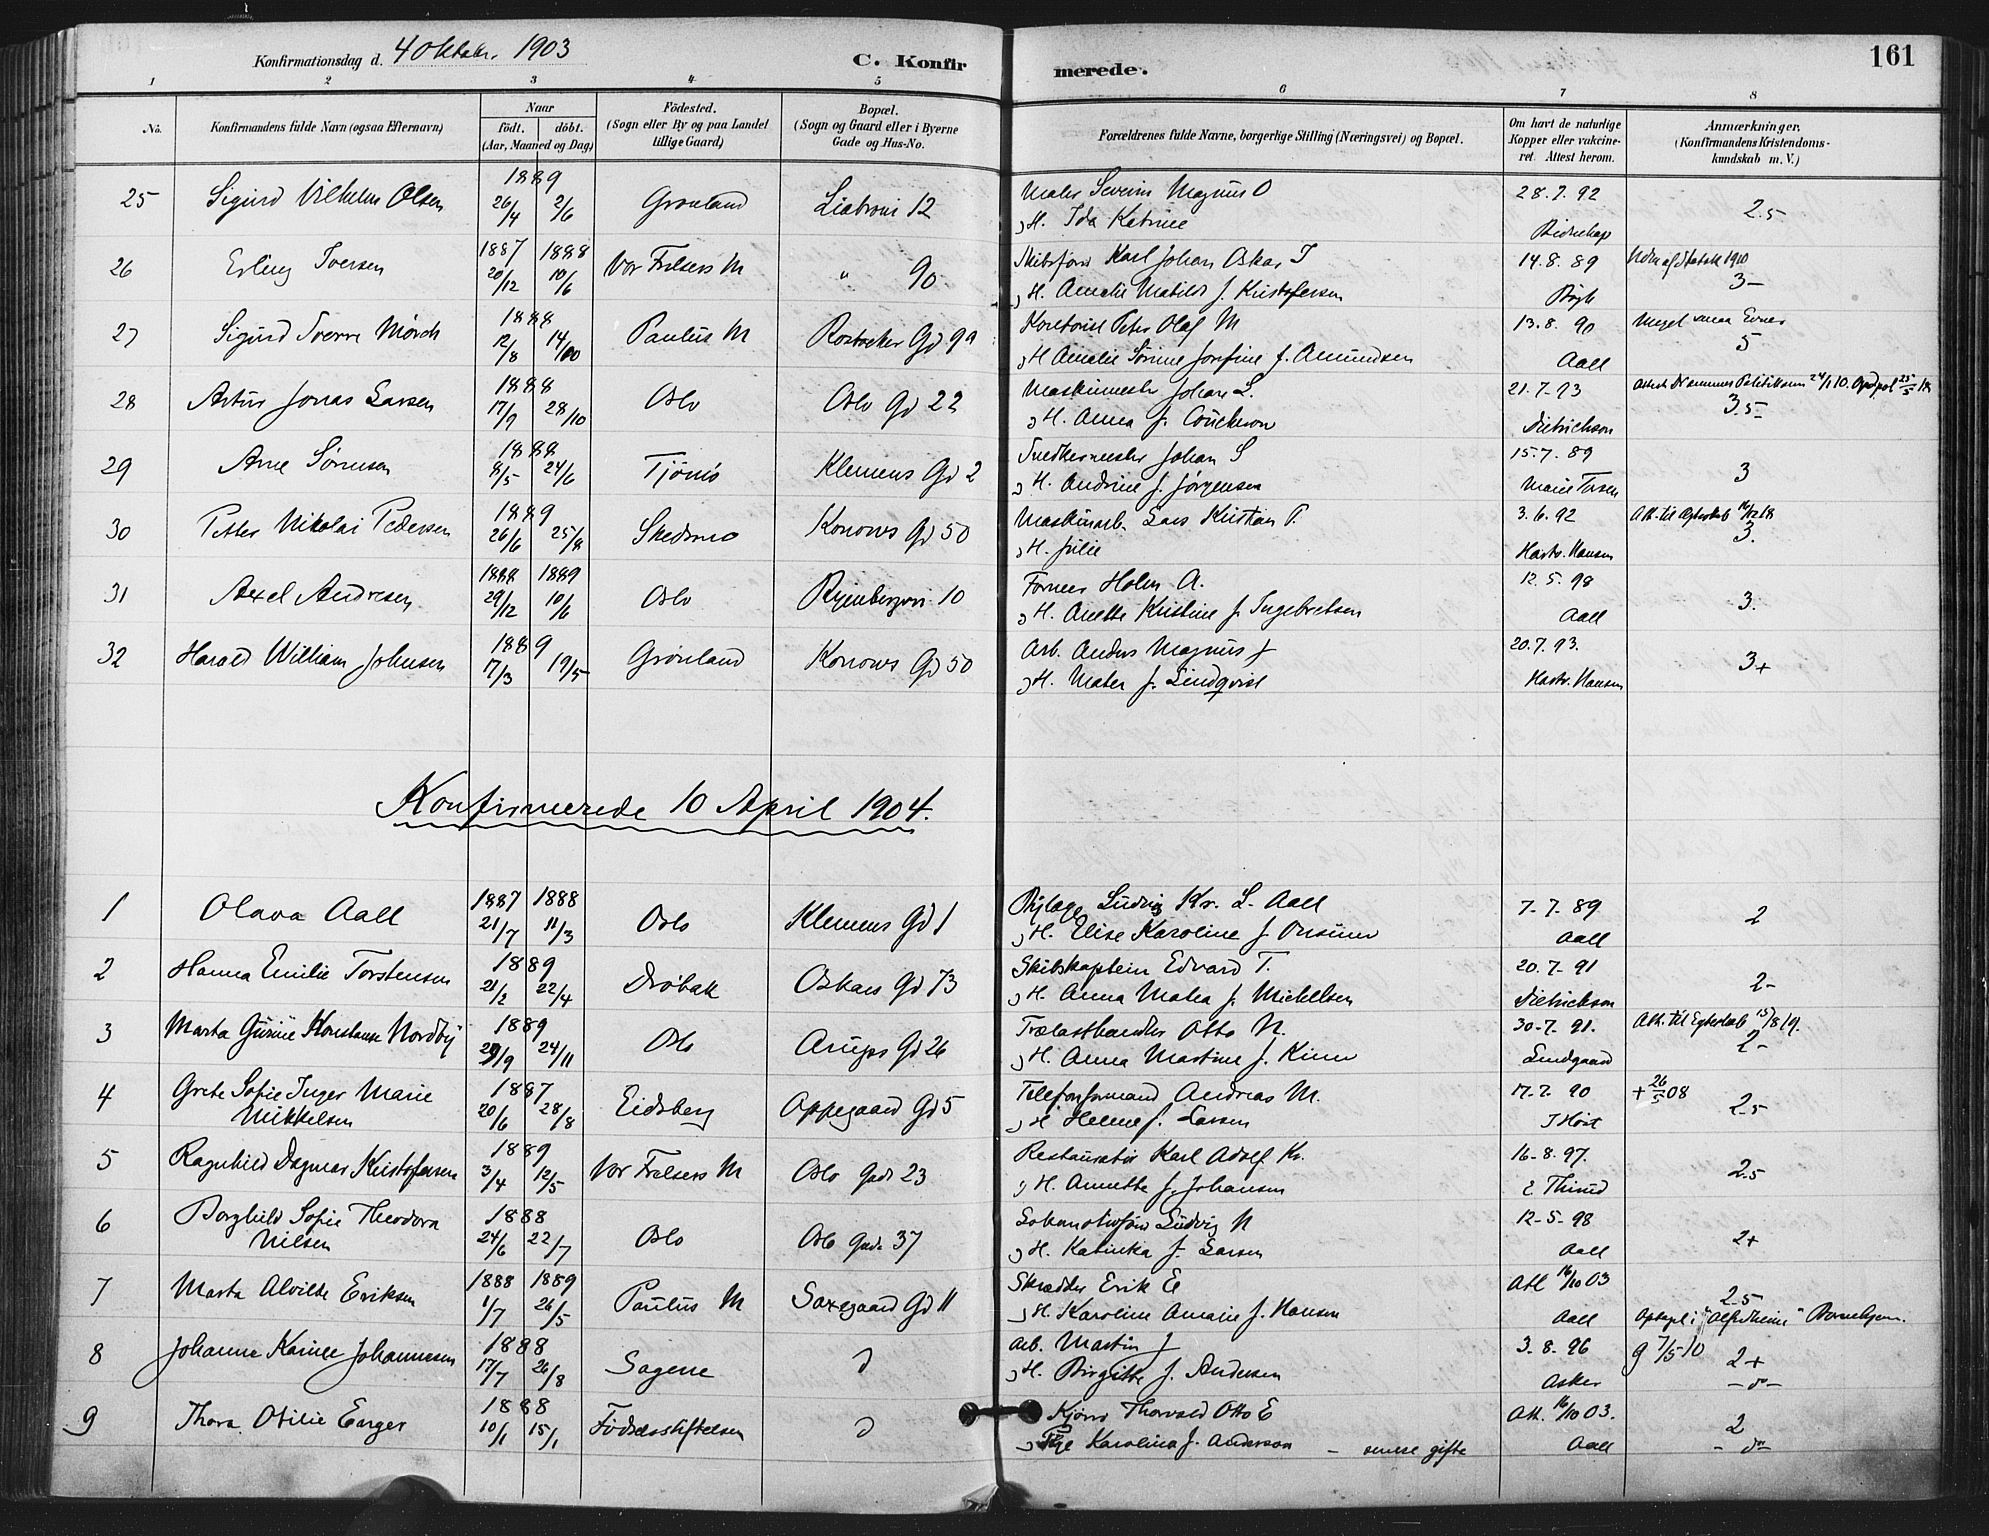 Konfirmationsdag d. 4 Oktober 1903
C. Konfirmerede.
161
1 2 3 4 5 6 7 8
No.
Konfirmandens fulde Navn (ogsaa Efternavn)
Naar
födt. döbt.
(Aar, Maaned og Dag)
Födested.
(Sogn eller By og paa Landet
tillige Gaard)
Bopæl.
(Sogn og Gaard eller i Byerne
Gade og Hus-No.
Forældrenes fulde Navne, borgerlige Stilling (Næringsvei) og Bopæl.
Om havt de naturlige
Kopper eller vakcine-
ret. Attest herom.
Anmærkninger.
(Konfirmandens Kristendoms-
kundskab m. V.)
25 Sigurd Vilhelm Olsen 1889 26/4 2/6 Grønland 12 Maler Severin Magnus O 28.7.92
H. Ida Katrine 2.5
26 Erling Iversen 1887 20/12 1888 10/6 Vor Frelsers M " 90 Skibsfører Karl Johan Oskar I 14.8.89
H. Amalie Matilde f. Kristofersen 3-
27 Sigurd Sverre Mörch 1888 12/8 14/10 Paulus M Rostocker Gd 99 Kontorist Peter Olaf M 13.8.90 Meget smaa Evner
H Amalie Josefine f. Amundsen Aall 5
28 Artur Jonas Larsen 1888 17/9 28/10 Oslo Oslo Gd 22 Maskinmester Johan L. 21.7.93
H. Anna f. Dietrichson 3.5
29 Arne Sørensen 1888 8/5 24/6 Tjömö Klemens Gd 2 Snedkermester Johan S 15.7.89
H. Andrine f. Jørgensen 3
30 Petter Nikolai Pedersen 1889 26/6 25/8 Skedsmo Konows Gd 50 Maskinarb. Lars Kristian P. 3.6.92 Att. til Egteskab
H. Julie Hansen 3.
31 Axel Andresen 1888 29/12 1889 10/6 Oslo 10 Former Holm A. 12.5.98
H. Anette Kristine f. Ingebretsen Aall 3.
32 Harald William Johnsen 1889 17/3 19/5 Grönland Konows Gd 50 Arb. Anders Magnus J 20.7.93.
H. f. Lindqvist Hansen 3+
Konfirmerede 10 April 1904.
1 Olava Aall 1887 21/7 1888 11/3 Oslo Klemens Gd 1 Ludvig Kr. L. Aall 7.7.89
H. Elise Karoline f Aall 2
2 Hanna Emilie Torstensen 1889 21/2 22/4 Dröbak Oskars Gd 73 Skibskaptein Edvard T. 20.7.91
H. Anna Matea f. Mickelsen Dietrichson 2-
3 Marta Konstanse Nordby 1889 24/11 Oslo Arups Gd 26 Trælasthandler Otto N. 30.7.91. Att. til Egteskab 15/8 19.
H. Anna Martine f. Lundgaard 2-
4 Grete Sofie Inger Marie
Mikkelsen 1887 20/6 28/8 Eidsberg Oppegaard Gd 5 Telefonformand Andreas M. 17.7.90 + 26/5 08
H Helene f. Larsen 2.5
5 Ragnhild Dagmar Kristofersen 1889 3/4 12/5 Vor Frelsers M Oslo Gade 23 Restauratör Karl Adolf Kr. 16.8.97.
H. Annette f. Johansen 2.5
6 Borghild Sofie Theodora
Nilsen 1888 24/6 22/7 Oslo Oslo Gade 37 Lokomotivförer Ludvig N 12-5-98
H. Katinka f. Larsen Aall 2+
7 Marta Alvilde Eriksen 1888 1/7 1889 26/5 Paulus M Saxegaard Gd 11 Skrædder Erik E Att 16/10 03
H. Karoline Amalie f. Hansen Aall 2.5
8 Johanne Johannesen 1888 17/7 26/8 Sagene Arb. Martin J 3.8.96 g 7/5 10
H. Birgitte f. Andersen Asker 2+
9 Thora Otilie Enger 1888 10/1 15/1 Fødselsstiftelsen Thorvald Otto E Att. 16/10 03.
Karolina f. Anderson - senere gifte Aall 2